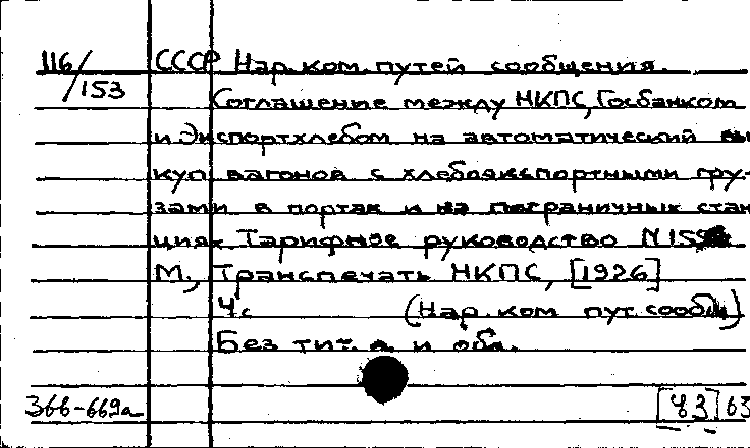 116/153
СССР Нар.ком.путей сообщения.
Соглашение между НКПС, Госбанком
и Экспортхлебом на автоматический вы-
куп вагонов с хлебоэкспортными гру-
зами в портах и на пограничных стан-
циях Тарифное руководство N
М., Транспечать НКПС, [1926]
4 с
(Нар.ком пут.сообщ)
Без тит.л. и обл.
366-669а
[43] 63